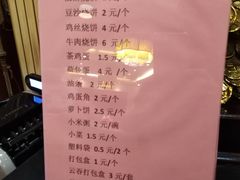 豆沙烧饼 2 元/个
鸡丝烧饼 4 元/个
牛肉烧饼 6 元/个
茶鸡蛋 1.5 元/个
元/个
油条 2 元/个
鸡蛋角 2 元/个
萝卜饼 2.5 元/个
小米粥 2 元/碗
小菜 1.5 元/个
塑料袋 0.5 元/2 个
打包盒 1 元/个
云吞打包盒 3 元/套